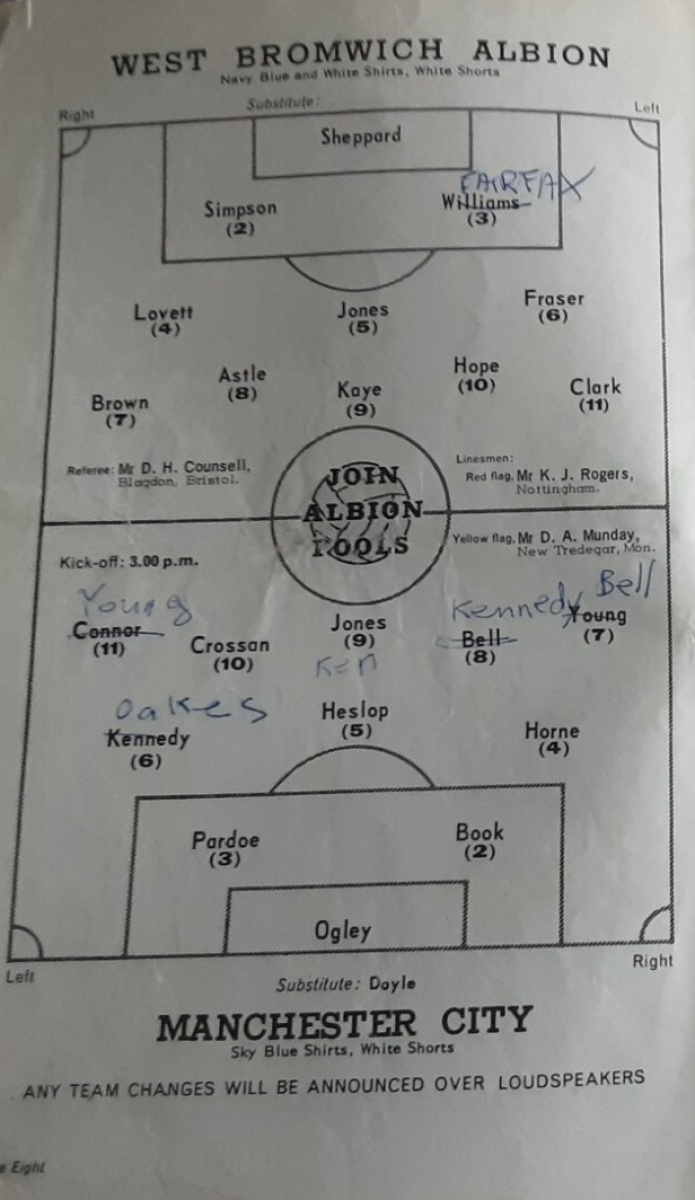 WEST BROMWICH ALBION
Navy Blue and White Shirts, White Shorts
Right
Substitute:
Left
Sheppard
FAIRFAX
Simpson
(2)
Williams
(3)
Lovett
(4)
Jones
(5)
Fraser
(6)
Brown
(7)
Astle
(8)
Kaye
(9)
Hope
(10)
Clark
(11)
Referee: Mr D. H. Counsell,
Blagdon, Bristol.
Linesmen:
Red flag, Mr K. J. Rogers,
Nottingham.
JOIN
ALBION
POOLS
Yellow flag, Mr D. A. Munday,
New Tredegar, Mon.
Kick-off: 3.00 p.m.
Young
Connor
(11)
Crossan
(10)
Jones
(9)
Kennedy
Bell
(8)
Bell
Young
(7)
Oakes
Kennedy
(6)
Heslop
(5)
Horne
(4)
Pardoe
(3)
Book
(2)
Ogley
Left
Right
Substitute: Doyle
MANCHESTER CITY
Sky Blue Shirts, White Shorts
ANY TEAM CHANGES WILL BE ANNOUNCED OVER LOUDSPEAKERS
Eight